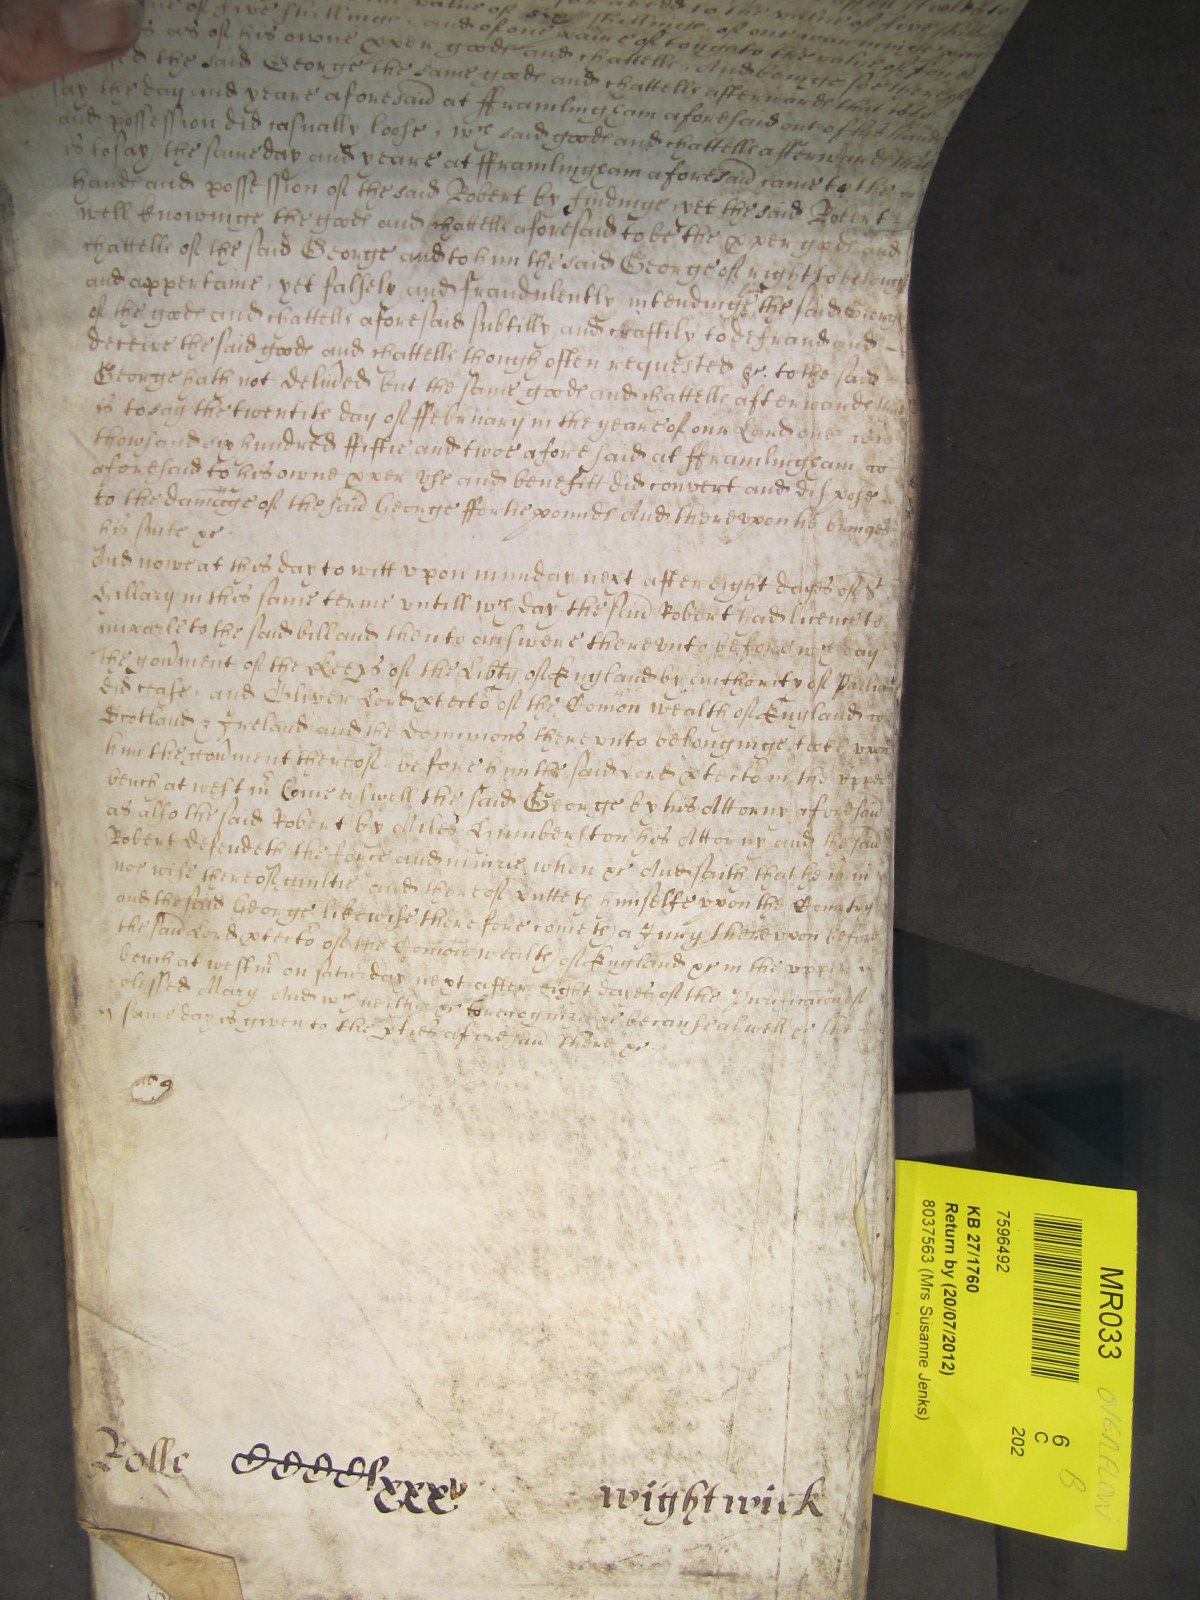 value of five shillings, and of one
as of his owne pper goods and chattells, And beinge soe thereof
the said George the same goods and chattells afterwards that is to
say the day and yeare aforesaid at Fframlingham aforesaid out of his hands
and possession did casually loose, wch said goods and chattells afterwards that
is to say the same day and yeare at Fframlingham aforesaid came to the
hands and possession of the said Robert by findinge yet the said Robert
well knowinge the goods and chattells aforesaid to be the pper goods and
chattells of the said George and to him the said George of right to belonge
and appertaine, yet falsely and fraudulently intendinge the said George
of the goods and chattells aforesaid subtilly and craftily to defraud and
deceive the said goods and chattells though often requested &c. to the said
George hath not delived but the same goods and chattells afterwards that
is to say the twentith day of Ffebruary in the yeare of our Lord one
thowsand six hundred Fiftie and twoe aforesaid at Fframlingham
aforesaid to his owne pper use and benefitt did convert and dispose
to the damage of the said George ffortie pounds And thereupon he bringes
his suite &c.
And nowe at this day to witt upon munday next after eight dayes of St.
Hillary in this same terme untill wch day the said Robert had licence to
imparle to the said bill and then to answere thereunto before wch day
the govment of the Keeps of the Libty of England by authority of Parliamt
did cease, and Oliver Lord ptector of the Comon wealth of England
Scotland & Ireland and the Dominions thereunto belonginge tooke upon
him the govment thereof. before him the said Lord ptector in the upper
bench at westmr Come aswell the said George by his Attorny aforesaid
as also the said Robert by Miles Humberston his Attorny and the said
Robert defendeth the force and iniurie when &c And saith that he is in
noe wise thereof guiltie and thereof putteth himselfe upon the Countrey
and the said George likewise therefore cometh a Jury thereupon before
the said Lord ptector of the Comon wealth of England &c in the upper
bench at westmr on saturday next after eight dayes of the Purificacion of
blessed Mary And wch neither &c to recognize &c because aswell &c the
same day is given to the pties aforesaid there &c.
Rolle CCCClxxxv
wightwick
MR033
OVERFLOW
6
C
202
B
7596492
KB 27/1760
Return by (20/07/2012)
8037563 (Mrs Susanne Jenks)